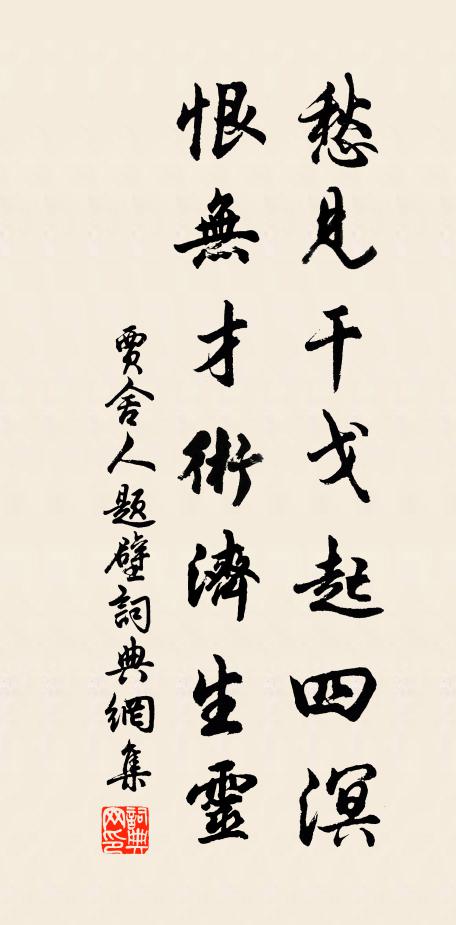 愁見干戈起四溟
恨無才術濟生靈
賈舍人題壁詞典網集
詞典網印